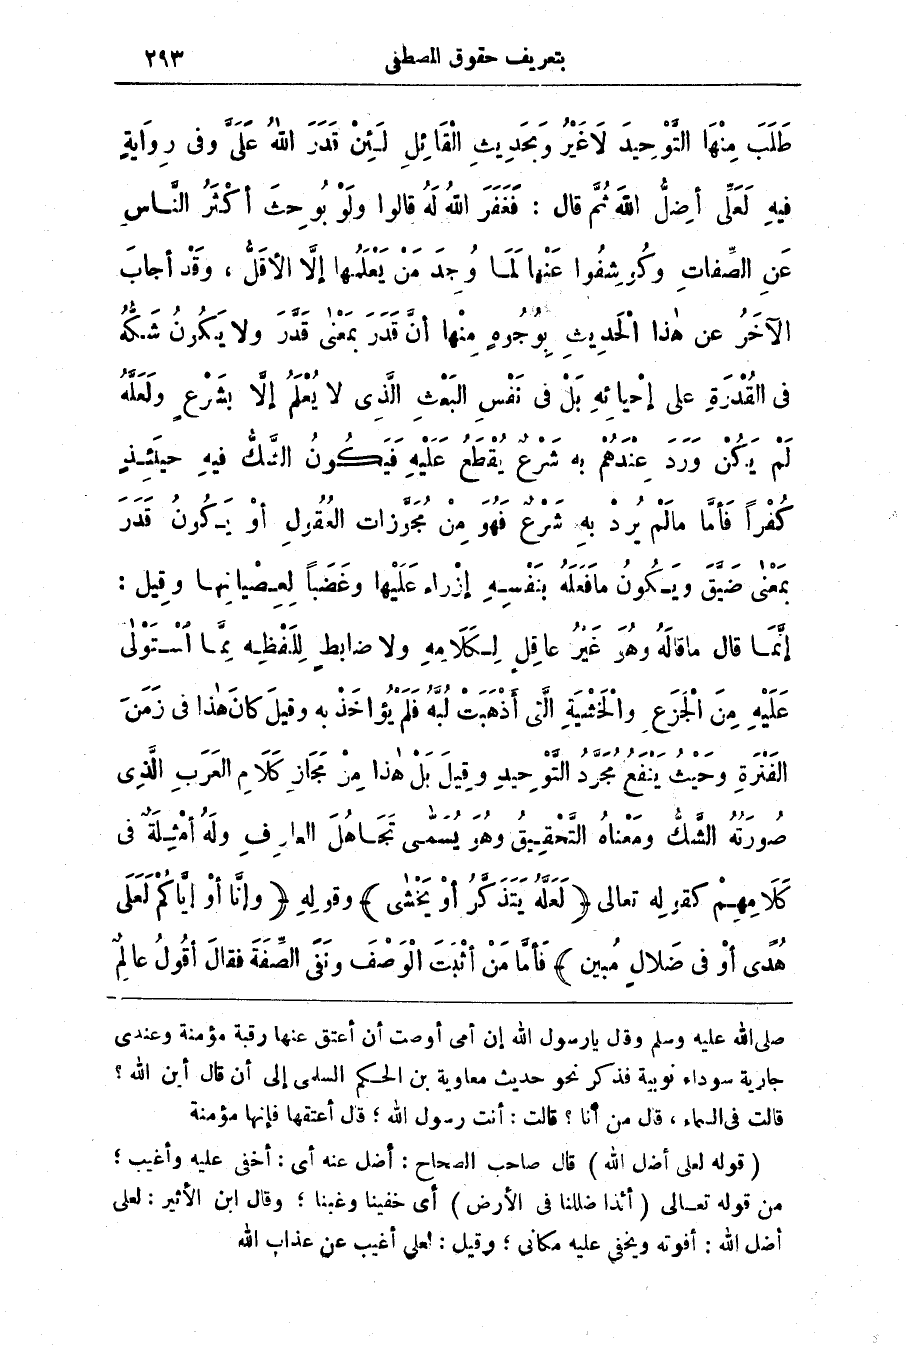 بتعريف حقوق المصطفى ٢٩٣
طَلَبَ مِنْهَا التَّوْحِيدَ لَاغَيْرُ وَبِحَدِيثِ الْقَائِلِ لَئِنْ قَدَرَ اللهُ عَلَىَّ وفى رِوَايَةٍ
فِيهِ لَعَلِّى أَضِلُّ اللهَ ثُمَّ قال : فَغَفَرَ اللهُ لَهُ قالوا ولَوْ بُوحِثَ أَكْثَرُ النَّاسِ
عَنِ الصِّفاتِ وكُوشِفُوا عَنْها لَمَا وُجِدَ مَنْ يَعْلَمُها إلَّا الأقَلُّ ، وقَدْ أجابَ
الآخَرُ عن هٰذا الْحَدِيثِ بِوُجُوهٍ مِنْها أنَّ قَدَرَ بِمَعْنٰى قَدَّرَ ولا يَكُونُ شَكُّهُ
فى القُدْرَةِ على إحْيائِهِ بَلْ فى نَفْسِ البَعْثِ الَّذِى لا يُعْلَمُ إلَّا بِشَرْعٍ ولَعَلَّهُ
لَمْ يَكُنْ وَرَدَ عِنْدَهُمْ به شَرْعٌ يُقْطَعُ عَلَيْهِ فَيَكُونُ الشَّكُّ فيهِ حِينَئِذٍ
كُفْراً فَأمَّا مالَمْ يُرِدْ بِهِ شَرْعٌ فَهُوَ مِنْ مُجَوَّزاتِ العُقُولِ أوْ يَكُونُ قَدَرَ
بِمَعْنٰى ضَيَّقَ ويَكُونُ مافَعَلَهُ بِنَفْسِهِ إزْراء عَلَيْها وغَضَباً لِعِصْيانِها وقِيلَ :
إنَّما قال ماقالَهُ وهُوَ غَيْرُ عاقِلٍ لِكَلامِهِ ولا ضابِطٍ لِلَفْظِهِ مِمَّا اسْتَوْلٰى
عَلَيْهِ مِنَ الْجَزَعِ والْخَشْيَةِ الَّتِى أذْهَبَتْ لُبَّهُ فَلَمْ يُؤاخَذْ به وقيلَ كانَ هٰذا فى زَمَنِ
الفَتْرَةِ وحَيْثُ يَنْفَعُ مُجَرَّدُ التَّوْحِيدِ وقِيلَ بَلْ هٰذا مِنْ مَجَازِ كَلَامِ العَرَبِ الَّذِى
صُورَتُهُ الشَّكُّ ومَعْناهُ التَّحْقِيقُ وهُوَ يُسَمّٰى تَجَاهُلَ العارِفِ ولَهُ أمْثِلَةٌ فى
كَلَامِهِمْ كقولِه تعالى ﴿ لَعَلَّهُ يَتَذَكَّرُ أوْ يَخْشٰى ﴾ وقولِهِ ﴿ وإنَّا أوْ إيَّاكُمْ لَعَلَى
هُدًى أوْ فى ضَلالٍ مُبينٍ ﴾ فَأمَّا مَنْ أثْبَتَ الْوَصْفَ ونَفَى الصِّفَةَ فقالَ أقُولُ عالِمٌ
صلى الله عليه وسلم وقال يارسول الله إن أمى أوصت أن أعتق عنها رقبة مؤمنة وعندى
جارية سوداء نوبية فذكر نحو حديث معاوية بن الحكم السلمى إلى أن قال أين الله ؟
قالت فى السماء ، قال من أنا ؟ قالت : أنت رسول الله ؛ قال أعتقها فإنها مؤمنة
( قوله لعلى أضل الله ) قال صاحب الصحاح : أضل عنه أى : أخفى عليه وأغيب ؛
من قوله تعالى ( أئذا ضللنا فى الأرض ) أى خفينا وغبنا ؛ وقال ابن الأثير : لعلى
أضل الله : أفوته ويخفى عليه مكانى ؛ وقيل : لعلى أغيب عن عذاب الله